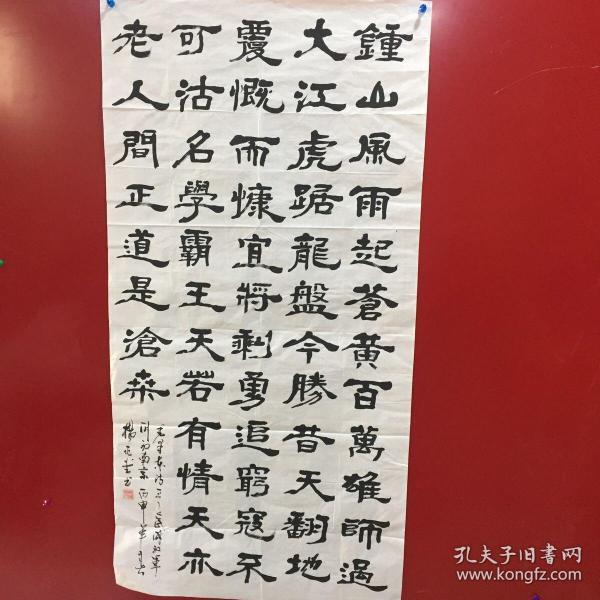 鍾山風雨起蒼黃百萬雄師過
大江虎踞龍盤今勝昔天翻地
覆慨而慷宜將剩勇追窮寇不
可沽名學霸王天若有情天亦
老人間正道是滄桑
毛澤東詩人民解放軍
南京 丙申年
楊 書
孔夫子旧书网
www.kongfz.com